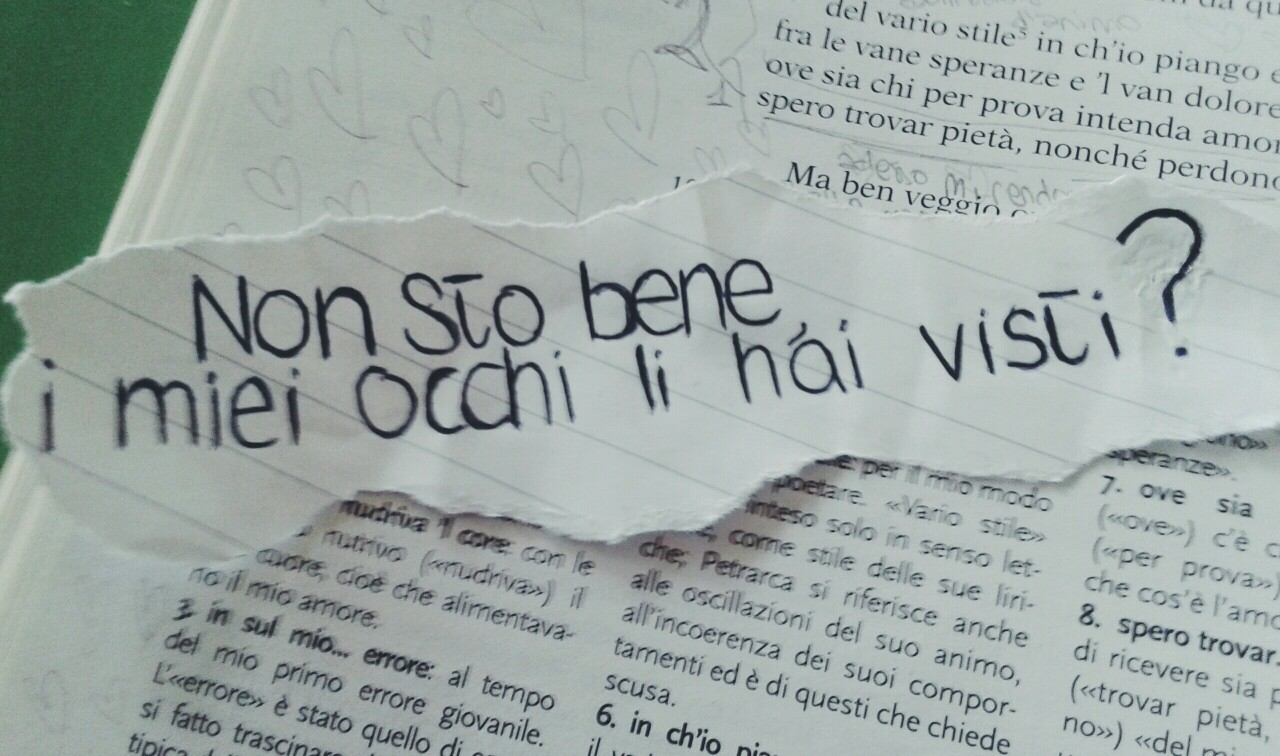 del vario stile⁵ in ch'io piango
fra le vane speranze e 'l van dolore
ove sia chi per prova intenda amor
spero trovar pietà, nonché perdono
adesso mi rendo
Ma ben veggio
Non sto bene,
i miei occhi li hai visti?
nudriva 'l core: con le
nutrivo («nudriva») il
cuore, cioè che alimentava-
no il mio amore.
3. in sul mio... errore: al tempo
del mio primo errore giovanile.
L'«errore» è stato quello di
si fatto trascinare
tipica
per il mio modo
poetare. «Vario stile»
inteso solo in senso let-
come stile delle sue liri-
che; Petrarca si riferisce anche
alle oscillazioni del suo animo,
all'incoerenza dei suoi compor-
tamenti ed è di questi che chiede
scusa.
6. in ch'io
il
speranze».
7. ove sia
(«ove») c'è
(«per prova»)
che cos'è l'amo
8. spero trovar.
di ricevere sia
(«trovar pietà,
no») «del